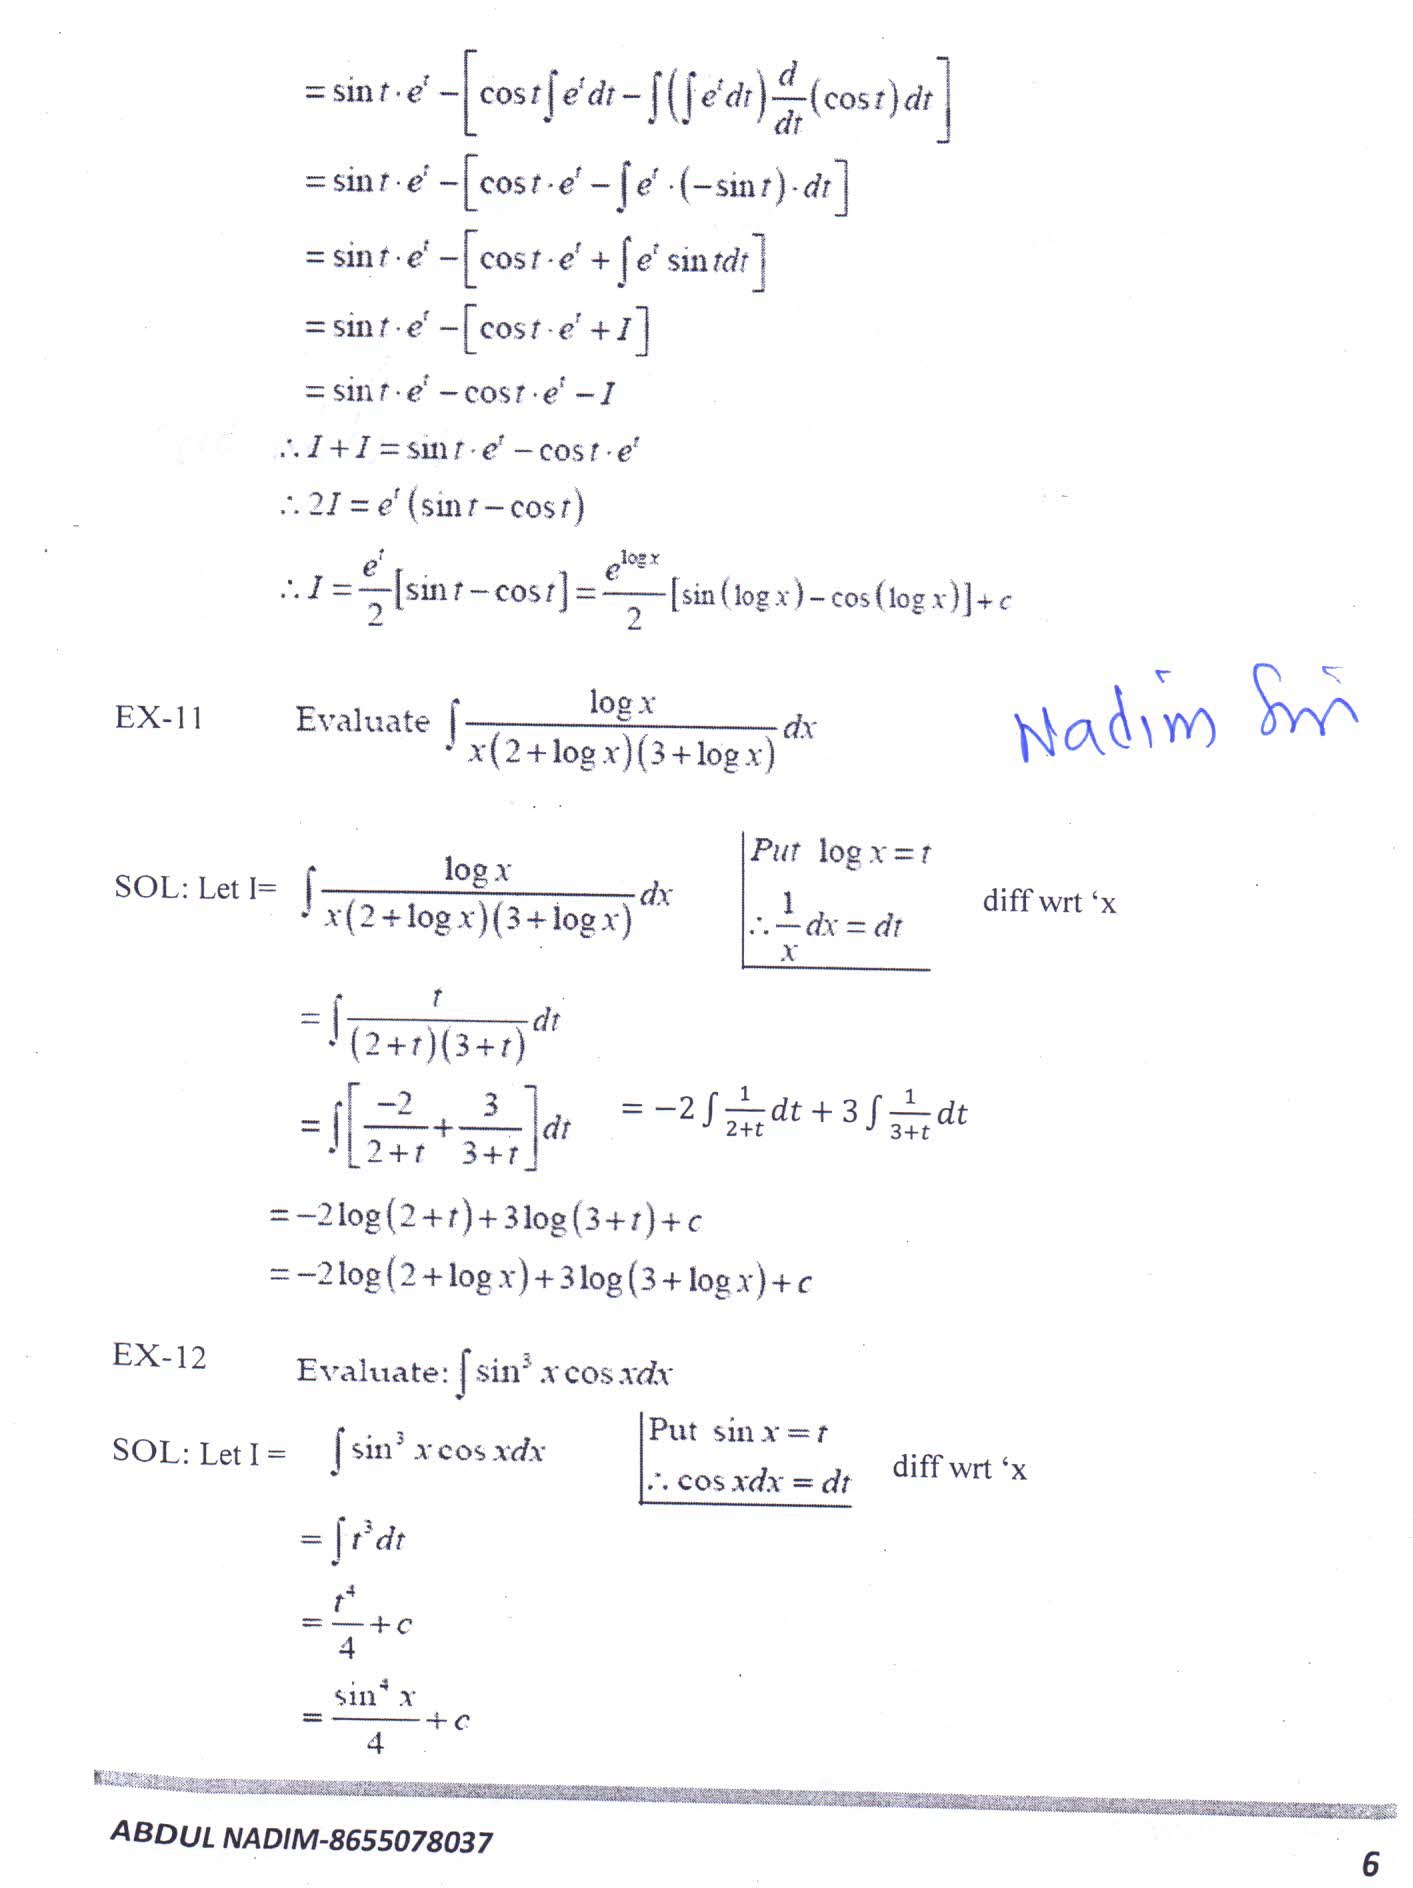 = sin t · e^t − [cos t ∫ e^t dt − ∫ (∫ e^t dt) d/dt (cos t) dt]
= sin t · e^t − [cos t · e^t − ∫ e^t · (−sin t) · dt]
= sin t · e^t − [cos t · e^t + ∫ e^t sin tdt]
= sin t · e^t − [cos t · e^t + I]
= sin t · e^t − cos t · e^t − I
∴ I + I = sin t · e^t − cos t · e^t
∴ 2I = e^t (sin t − cos t)
∴ I = e^t/2 [sin t − cos t] = e^(log x)/2 [sin(log x) − cos(log x)] + c
Nadim
EX-11 Evaluate ∫ log x / x(2 + log x)(3 + log x) dx
SOL: Let I= ∫ log x / x(2 + log x)(3 + log x) dx Put log x = t
∴ 1/x dx = dt diff wrt ‘x
= ∫ t / (2 + t)(3 + t) dt
= ∫ [−2/(2 + t) + 3/(3 + t)] dt = −2 ∫ 1/(2+t) dt + 3 ∫ 1/(3+t) dt
= −2 log(2 + t) + 3 log(3 + t) + c
= −2 log(2 + log x) + 3 log(3 + log x) + c
EX-12 Evaluate: ∫ sin³ x cos xdx
SOL: Let I = ∫ sin³ x cos xdx Put sin x = t
∴ cos xdx = dt diff wrt ‘x
= ∫ t³ dt
= t⁴/4 + c
= sin⁴ x/4 + c
ABDUL NADIM-8655078037
6